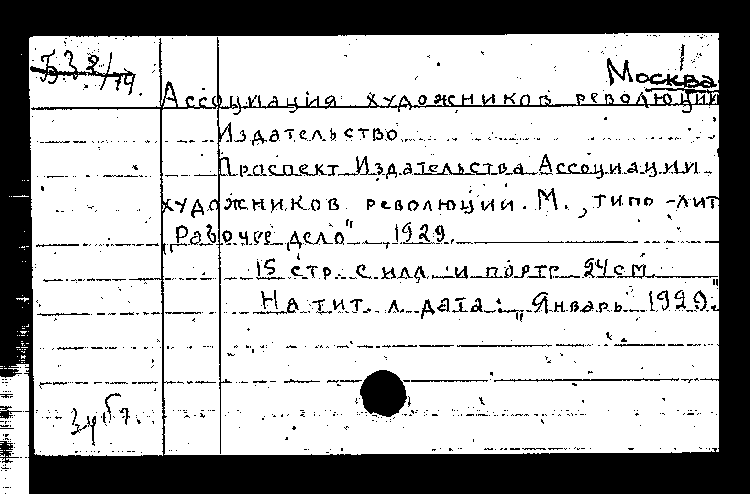 Б 3 2/79.
Москва
Ассоциация художников революции
Издательство
Проспект Издательства Ассоциации
художников революции. М., типо-лит
"Рабочее дело". 1929.
15 стр. с илл. и портр. 24 см.
На тит. л. дата: "Январь 1929."